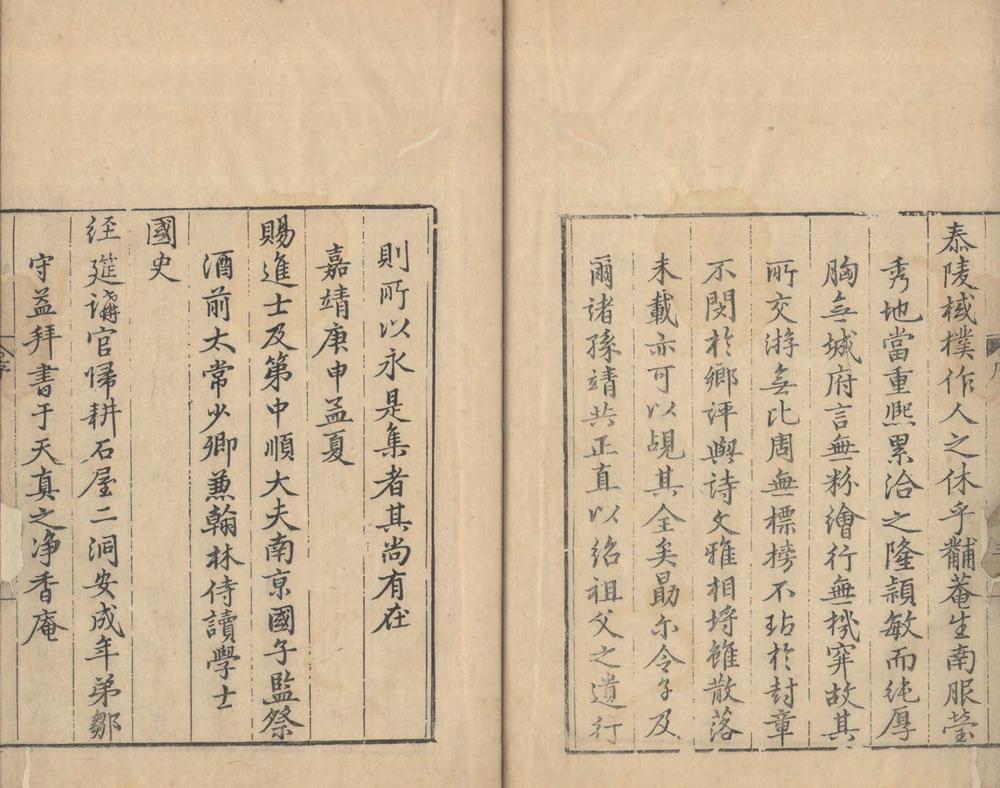 泰陵棫樸作人之休乎黼菴生南服瑩
秀地當重熙累洽之隆穎敏而純厚
胸無城府言無粉繪行無機穽故其
所交游無比周無標搒不玷於封章
不閔於鄉評與詩文雅相埒雖散落
未載亦可以覘其全矣勗尓令子及
爾諸孫靖共正直以紹祖父之遺行
則所以永是集者其尚有在
嘉靖庚申孟夏
賜進士及第中順大夫南京國子監祭
酒前太常少卿兼翰林侍讀學士
國史
経筵講官歸耕石屋二洞安成年弟鄒
守益拜書于天真之净香庵